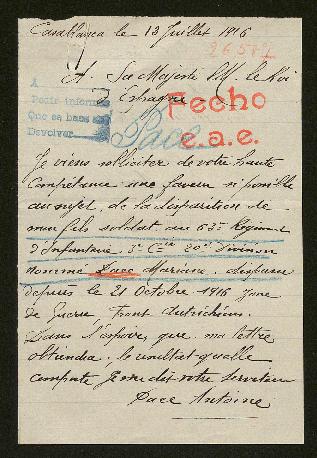 Casablanca le 13 Juillet 1916
26572
A. Sa Majesté le Roi
Espagne
A
Pedir informe
Que se hace
Devolver
Fecho
e.a.e.
Pace
Je viens solliciter de votre haute
Compétance une faveur si possible
au sujet de la disparition de
mon fils soldat au 63e Regiment
d'Infanterie 3e Cie 20e Division
nommé Pace Mariano, disparu
depuis le 21 Octobre 1916 zone
de Guerre, Front Autrichien.
Dans l'espoire, que ma lettre
obtiendra, le resultat qu'elle
comporte Je me dis votre serviteur
Pace Antoine